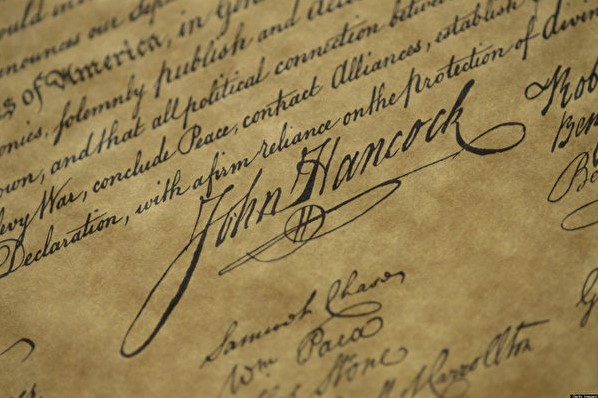 nnounces our
s of America, in Gen
onies, solemnly publish and
own, and that all political connection between
evy War, conclude Peace, contract Alliances, establish
Declaration, with a firm reliance on the protection of divin
John Hancock
Rob
Ben
Samuel Chase
Wm Paca
Stone
Carrollton